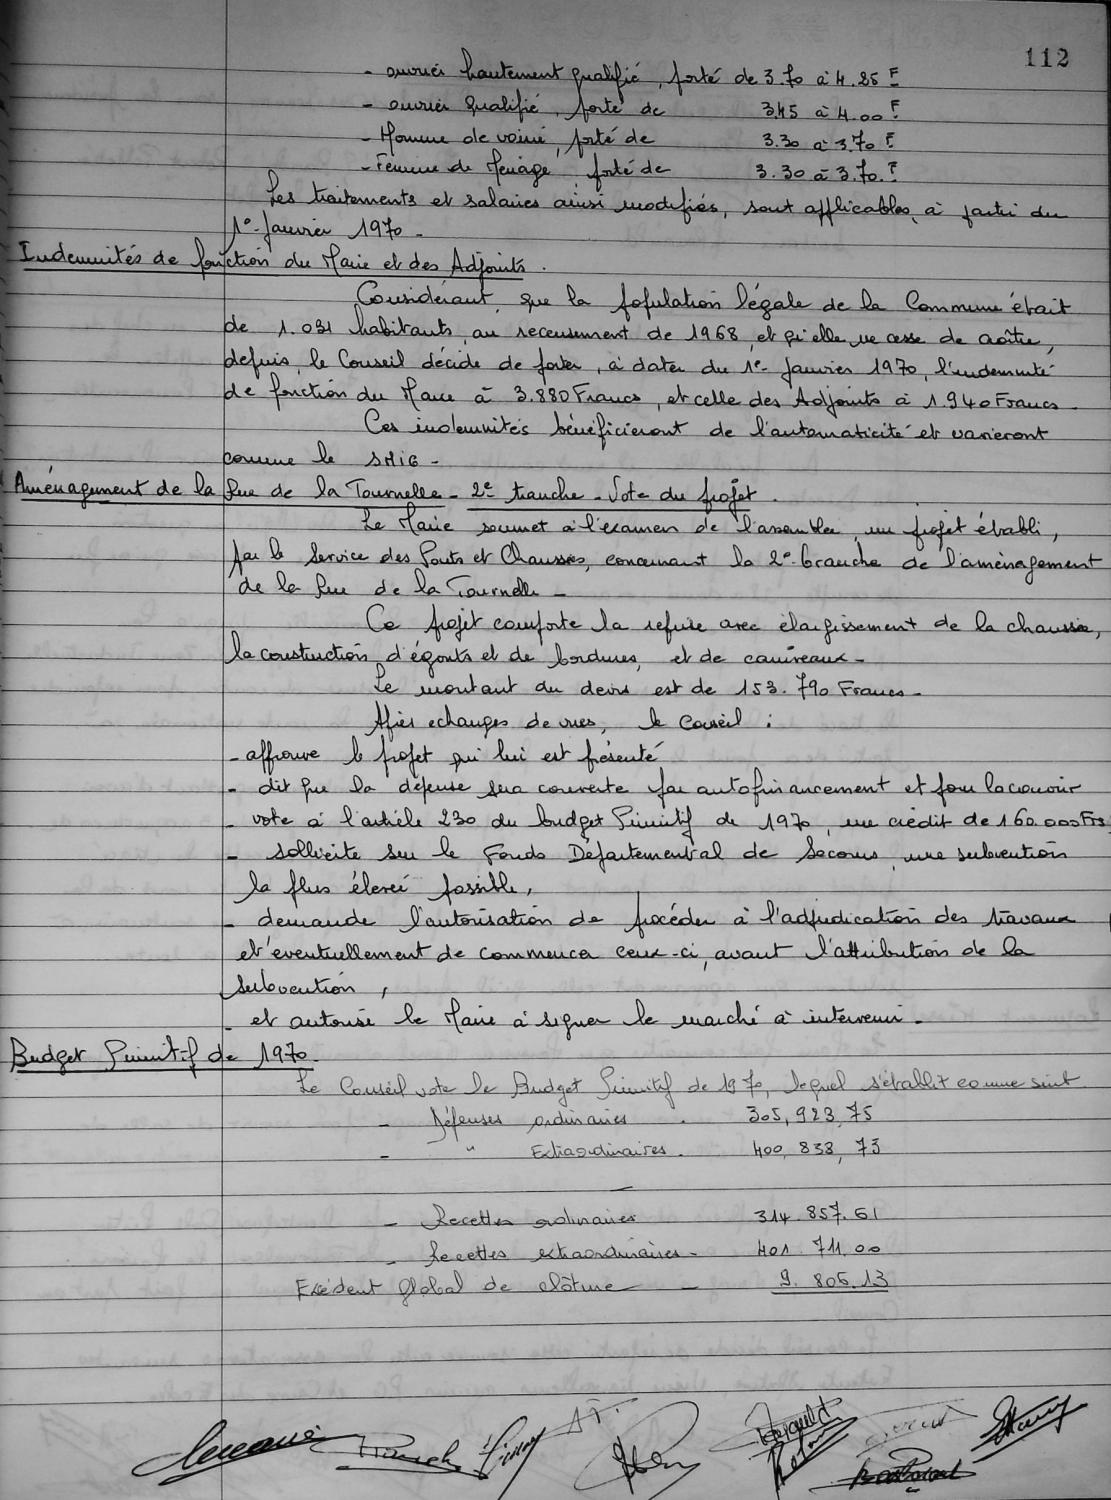 112
- ouvrier hautement qualifié, porté de 3.70 à 4.25 F
- ouvrier qualifié, porté de 3.45 à 4.00 F
- Homme de voirie, porté de 3.30 à 3.70 F
- Femme de Ménage porté de 3.30 à 3.70 F
Les traitements et salaires ainsi modifiés, sont applicables, à partir du
1e Janvier 1970 -
Indemnités de fonction du Maire et des Adjoints.
Considérant que la population légale de la Commune était
de 1.031 habitants au recensement de 1968, et qu'elle ne cesse de croître,
depuis, le Conseil décide de porter, à dater du 1e Janvier 1970, l'indemnité
de fonction du Maire à 3.880 Francs, et celle des Adjoints à 1.940 Francs -
Ces indemnités bénéficieront de l'automaticité et varieront
comme le SMIG -
Aménagement de la Rue de la Tournelle - 2e tranche - Vote du projet.
Le Maire soumet à l'examen de l'assemblée, un projet établi,
par le Service des Ponts et Chaussées, concernant la 2e tranche de l'aménagement
de la Rue de la Tournelle -
Ce projet comporte la refuse avec élargissement de la chaussée,
la construction d'égouts et de bordures, et de caniveaux -
Le montant du devis est de 153.790 Francs -
Après echanges de vues, le Conseil :
- approuve le projet qui lui est présenté
- dit que la dépense sera couverte par autofinancement et pour la couvrir
- vote à l'article 230 du budget Primitif de 1970, un crédit de 160.000 Frs
- sollicite sur le Fonds Départemental de Secours une subvention
la plus élevée possible,
- demande l'autorisation de procéder à l'adjudication des travaux
et éventuellement de commencer ceux-ci, avant l'attribution de la
subvention,
- et autorise le Maire à signer le marché à intervenir -
Budget Primitif de 1970.
Le Conseil vote le Budget Primitif de 1970, lequel s'établit comme suit
- Dépenses ordinaires . 305,923,75
- " Extraordinaires . 400,838,73
- Recettes ordinaires 314.857.61
- Recettes extraordinaires - 401 711.00
Exédent Global de clôture - 9.806.13